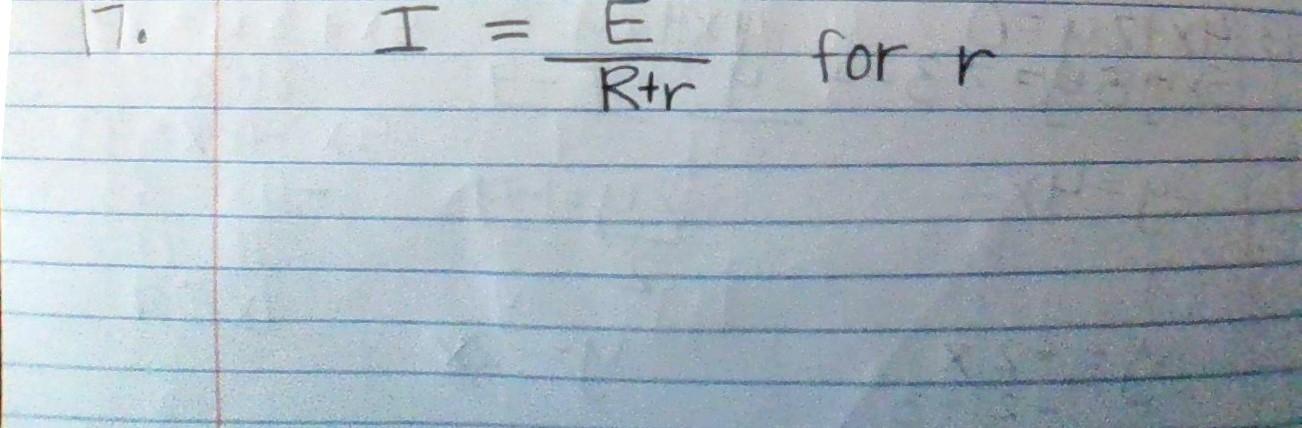 17. I = E/R+r for r